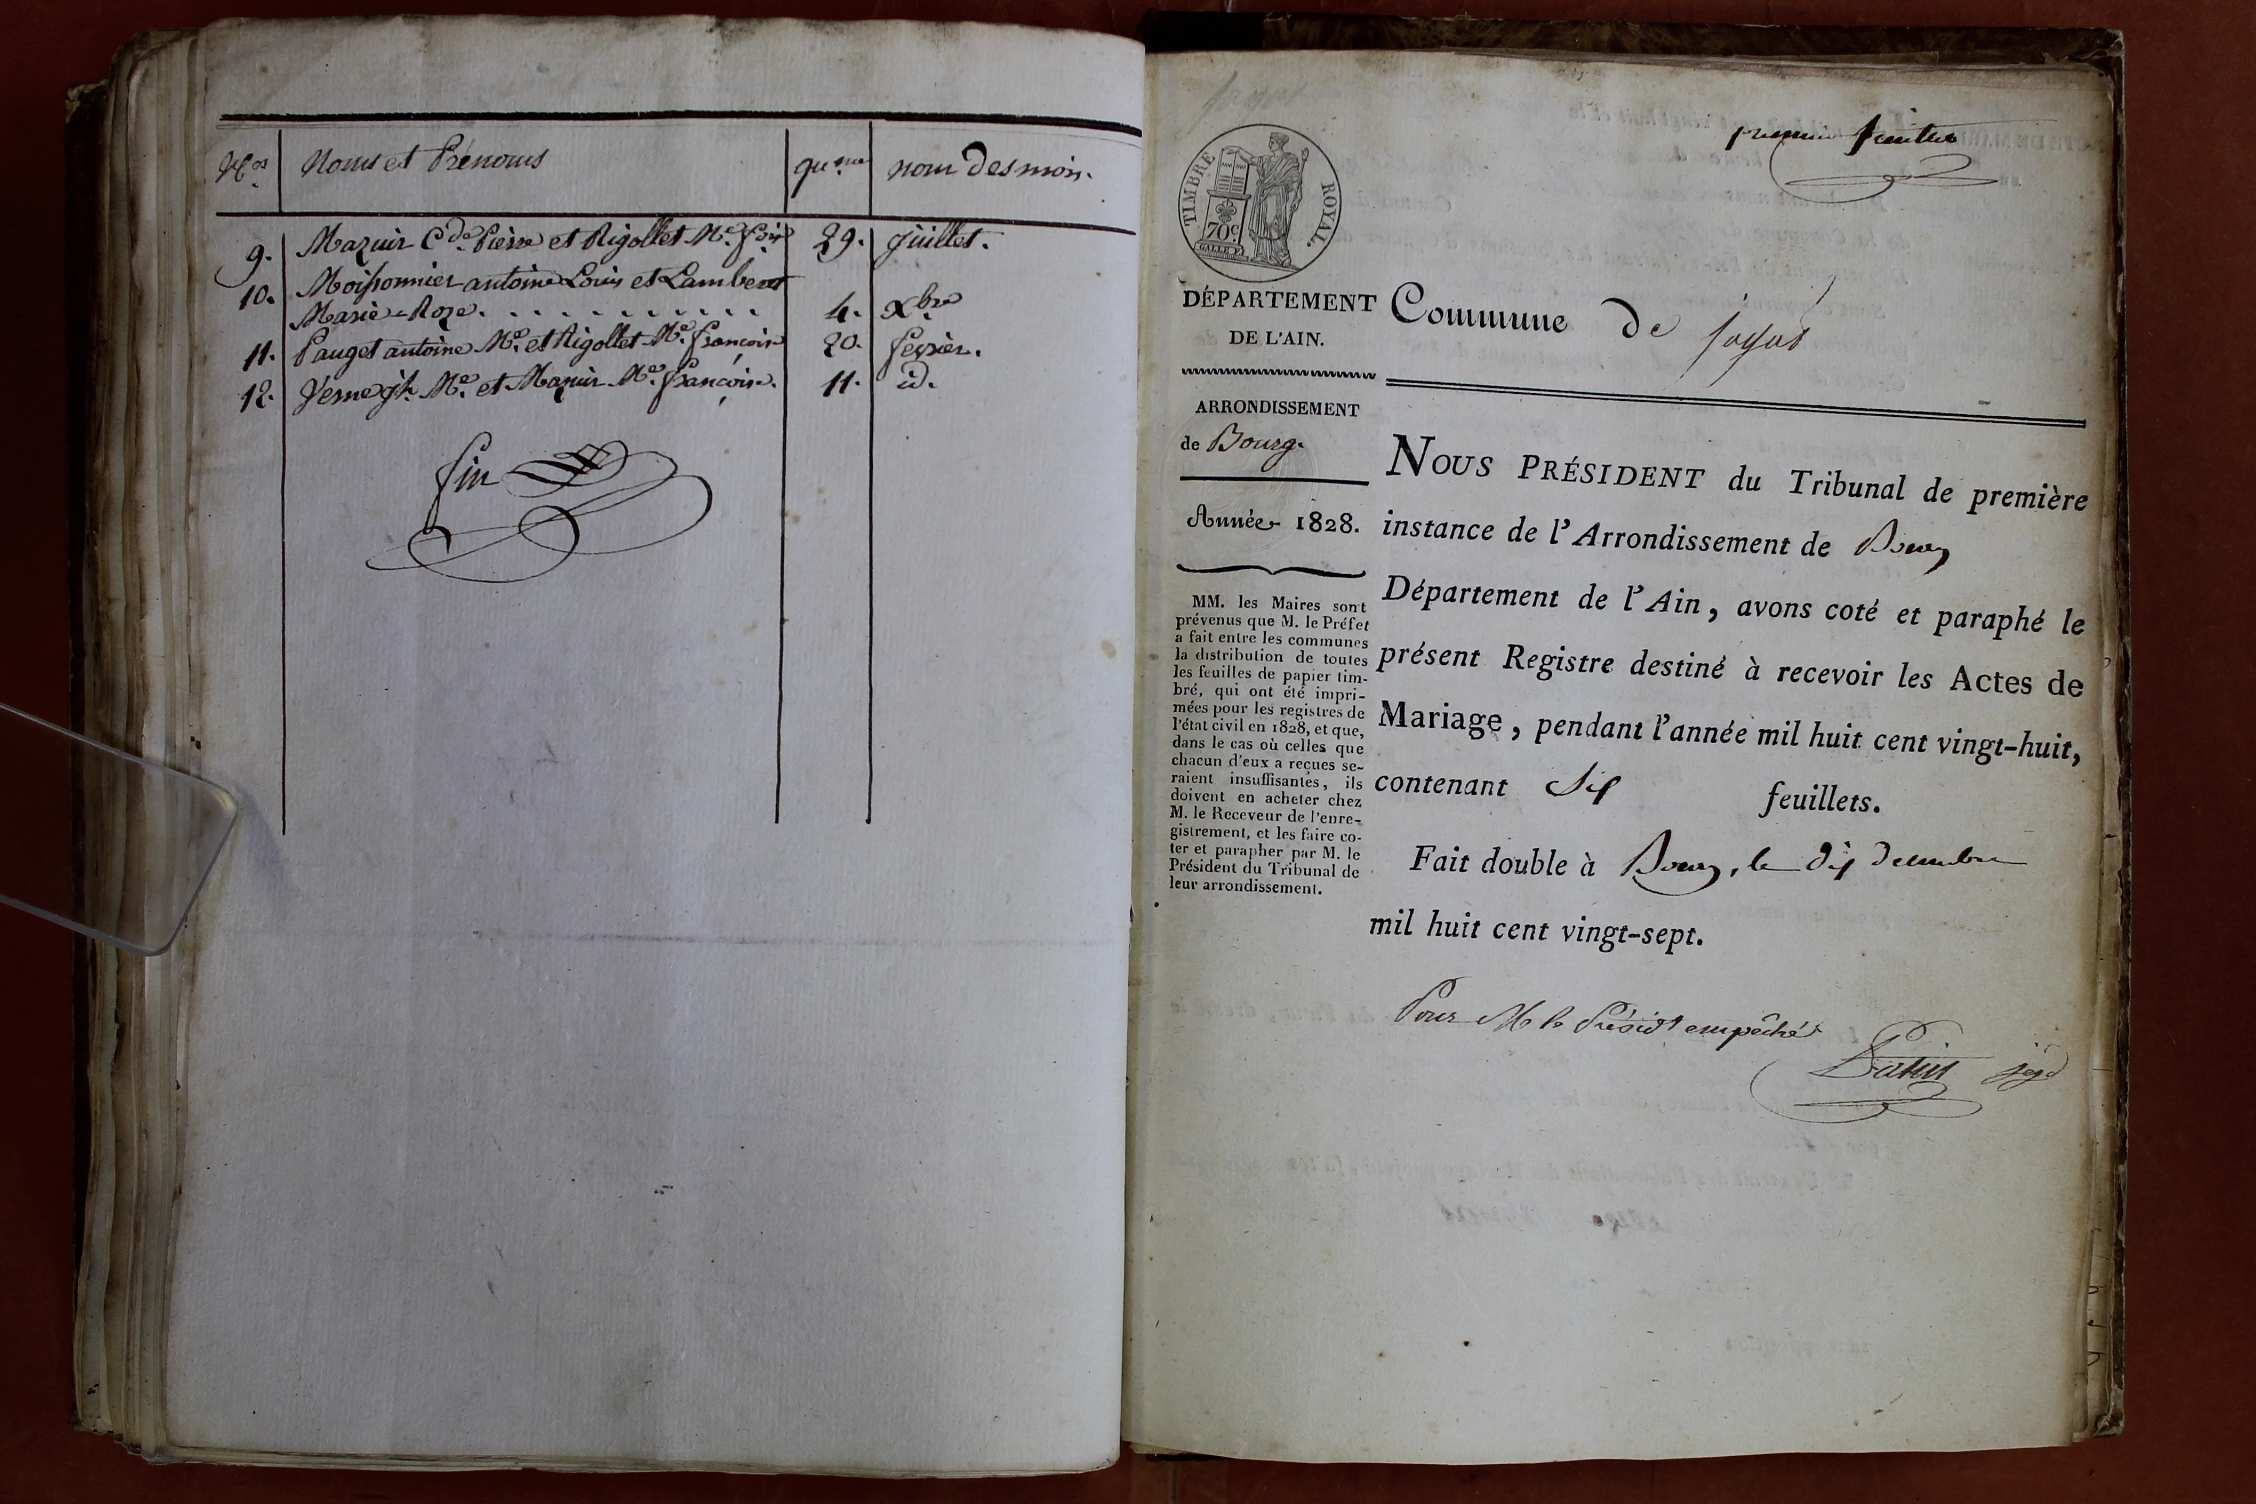 Nos. Noms et Prénoms quème nom des mois.
9. Mazuir Cde. Pierre et Rigollet Me. foise 29. juillet.
10. Moissonnier antoine Louis et Lambert
Marie-Roze. . . . . . . . . . . . 4. Xbre
11. Pauget antoine Me. et Rigollet Me. françoise 20. fevrier.
12. Verne jh. Me. et Mazuir Me. françoise. 11. id.
fin
premier feuillet
TIMBRE ROYAL.
70c.
DÉPARTEMENT
DE L'AIN.
ARRONDISSEMENT
de Bourg.
Année 1828.
MM. les Maires sont
prévenus que M. le Préfet
a fait entre les communes
la distribution de toutes
les feuilles de papier tim-
bré, qui ont été impri-
mées pour les registres de
l'état civil en 1828, et que,
dans le cas où celles que
chacun d'eux a reçues se-
raient insuffisantes, ils
doivent en acheter chez
M. le Receveur de l'enre-
gistrement, et les faire co-
ter et parapher par M. le
Président du Tribunal de
leur arrondissement.
Commune de jayat
NOUS PRÉSIDENT du Tribunal de première
instance de l'Arrondissement de Bourg
Département de l'Ain, avons coté et paraphé le
présent Registre destiné à recevoir les Actes de
Mariage, pendant l'année mil huit cent vingt-huit,
contenant Six feuillets.
Fait double à Bourg, le dix decembre
mil huit cent vingt-sept.
Pour Mr le Présidt empêché